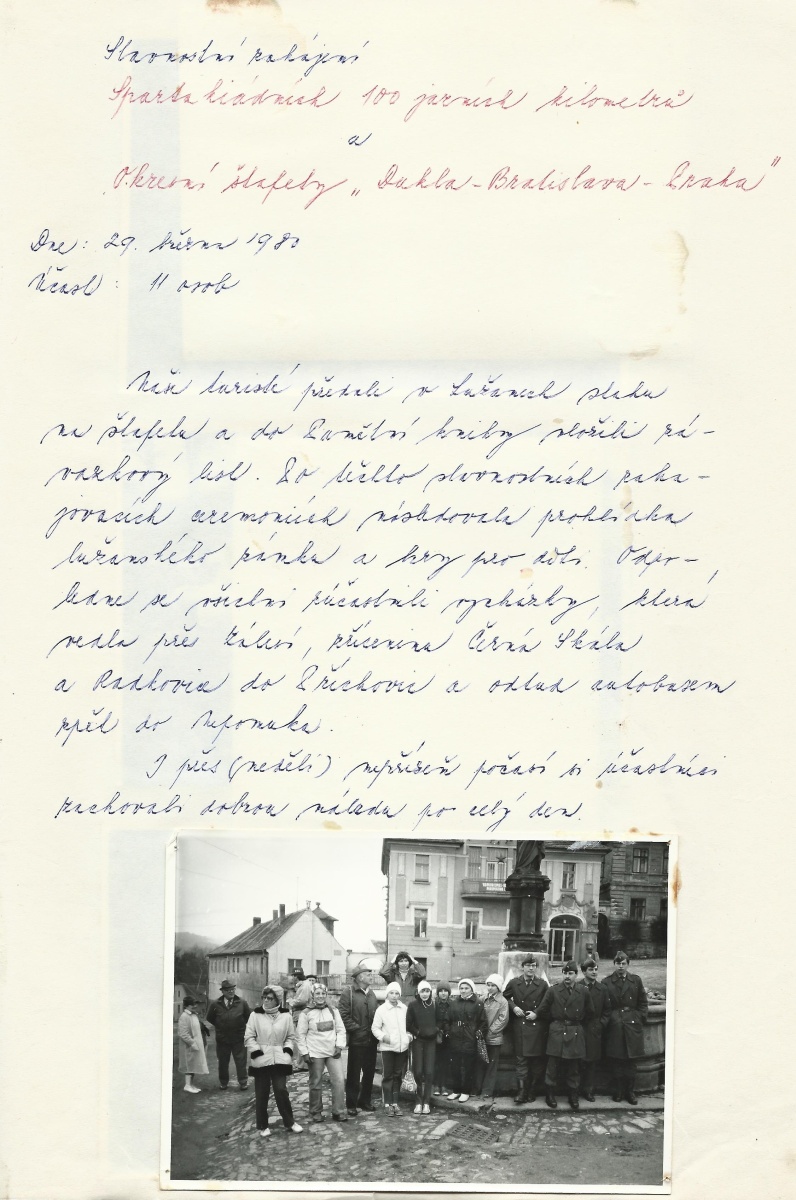 Slavnostní zahájení
Spartakiádních 100 jarních kilometrů
a
Okresní štafety „Dukla - Bratislava - Praha"
Dne: 29. března 1980
Účast: 11 osob
Naši turisté předali v Lužanech stuhu
na štafetu a do Pamětní knihy vložili zá-
vazkový list. Po těchto slavnostních zaha-
jovacích ceremoniích následovala prohlídka
lužanského zámku a hry pro děti. Odpo-
ledne se všichni zúčastnili vycházky, která
vedla přes Zálesí, zřícenina Černá Skála
a Radkovice do Příchovic a odtud autobusem
zpět do Nepomuka.
I přes (neděli) nepřízeň počasí si účastníci
zachovali dobrou náladu po celý den.